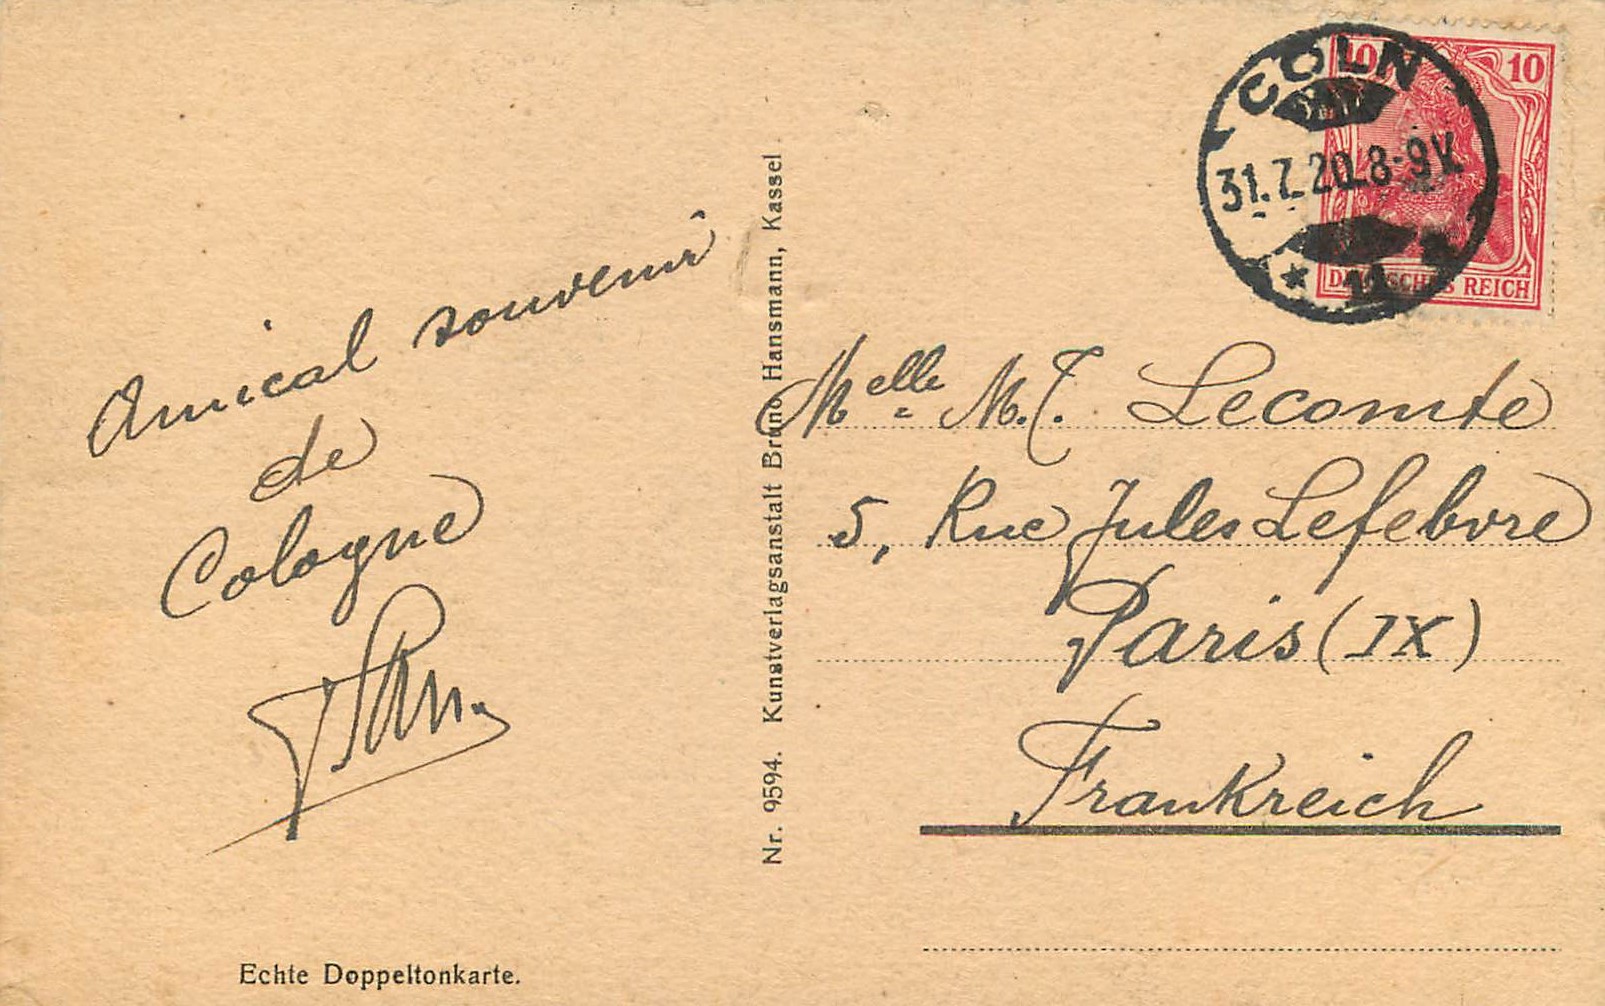 Amical souvenir
de
Cologne
Echte Doppeltonkarte.
Nr. 9594. Kunstverlagsanstalt Bruno Hansmann, Kassel.
CÖLN
31.7.20.8-9V.
* 11
10 10
DEUTSCHES REICH
Melle M.T. Lecomte
5, Rue Jules Lefebvre
Paris (IX)
Frankreich